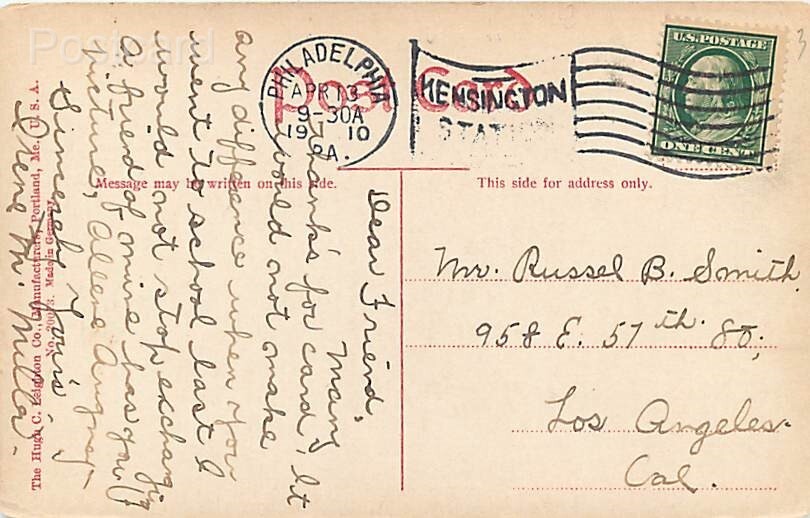 Postcard
Post Card
PHILADELPHIA
APR 13
9-30A
1910
PA.
KENSINGTON
STATION
U.S. POSTAGE
ONE CENT
3
Message may be written on this side.
This side for address only.
Dear Friend,
Many
thanks for card, it
would not make
any difference when you
went to school last I
would not stop exchanging
a friend of mine has your
picture, Allene
Sincerely Yours,
Irene M. Miller.
Mr. Russel B. Smith
958 E. 57th St.,
Los Angeles.
Cal.
The Hugh C. Leighton Co., Manufacturers, Portland, Me., U. S. A.
Made in Germany.